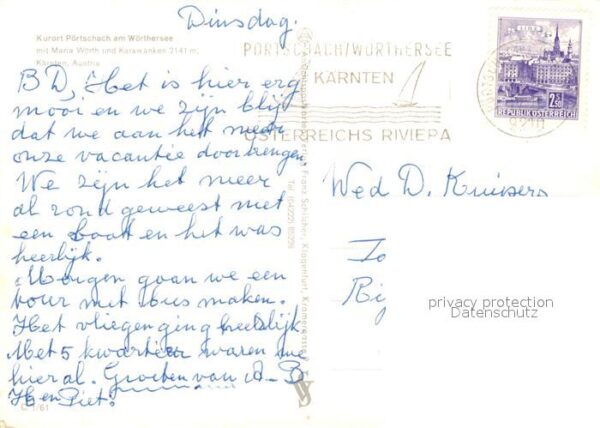 Dinsdag.
Kurort Pörtschach am Wörthersee
mit Maria Wörth und Karawanken 2141 m,
Kärnten, Austria
BD, Het is hier erg
mooi en we zijn blij
dat we aan het meer
onze vacantie doorbrengen
We zijn het meer
al rond geweest met
een boot en het was
heerlijk.
Morgen gaan we een
tour met bus maken.
Het vliegen ging heerlijk
Met 5 kwartier waren we
hier al. Groeten van A-B
H en Piet.
C 1/61
PÖRTSCHACH/WÖRTHERSEE
KÄRNTEN
ÖSTERREICHS RIVIERA
9210
LINZ
2.50
REPUBLIK ÖSTERREICH
Franz Schilcher, Klagenfurt,
Wed D. Kruisers
To
Rij
privacy protection
Datenschutz